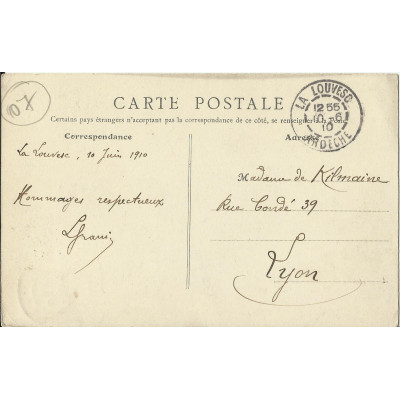 OX
CARTE POSTALE
Certains pays étrangers n'acceptant pas la correspondance de ce côté, se renseigner à la
Correspondance
La Louvesc, 10 Juin 1910
Hommages respectueux
LA LOUVESC
12 55
10
ARDECHE
Madame de Kilmaine
Rue Condé 39
Lyon